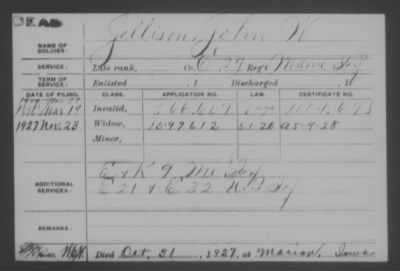 DEAD
Jellison, John W
NAME OF SOLDIER:
SERVICE: Late rank, Co. E, 27 Reg't Maine Inf
TERM OF SERVICE: Enlisted , 1 Discharged , 1
DATE OF FILING. CLASS. APPLICATION NO. LAW. CERTIFICATE NO.
Invalid,
1927 Nov. 23 Widow, 1597612 5-1-20 A5-9-28
Minor,
ADDITIONAL SERVICES: E & K 9, Me. Inf
E 21 & E 32 U.S. Inf
REMARKS:
Died Oct. 31, 1927, at Marion, Iowa